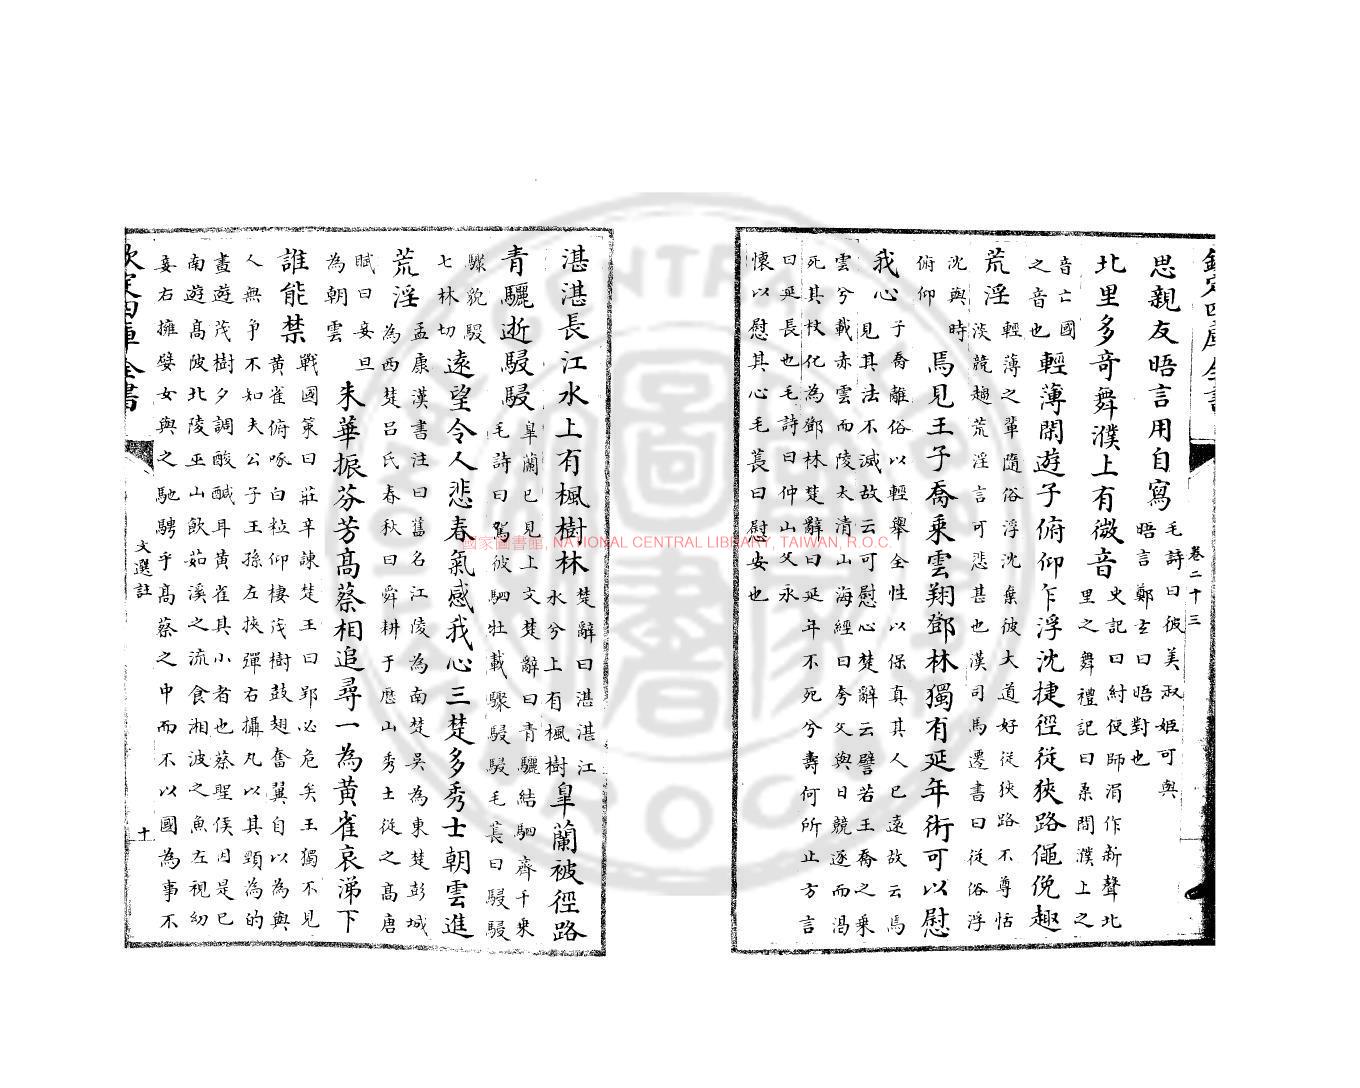 欽定四庫全書
卷二十三
思親友晤言用自寫
毛詩曰彼美淑姬可與
晤言鄭玄曰晤對也
北里多奇舞濮上有微音
史記曰紂使師涓作新聲北
里之舞禮記曰桑間濮上之
音亡國
之音也
輕薄閑遊子俯仰乍浮沈捷徑從狹路僶俛趣
荒淫
輕薄之輩隨俗浮沈棄彼大道好從狹路不尊恬
淡競趨荒淫言可悲甚也漢司馬遷書曰從俗浮
沈與時
俯仰
焉見王子喬乘雲翔鄧林獨有延年術可以慰
我心
子喬離俗以輕舉全性以保真其人已遠故云焉
見其法不滅故云可慰心楚辭云譬若王喬之乘
雲兮載赤雲而陵太清山海經曰夸父與日競逐而渴
死其杖化為鄧林楚辭曰延年不死兮壽何所止方言
曰延長也毛詩曰仲山父永
懷以慰其心毛萇曰慰安也
湛湛長江水上有楓樹林
楚辭曰湛湛江
水兮上有楓樹
臯蘭被徑路
青驪逝駸駸
臯蘭已見上文楚辭曰青驪結駟齊千乗
毛詩曰駕彼駟牡載驟駸駸毛萇曰駸駸
驟貌駸
七林切
遠望令人悲春氣感我心三楚多秀士朝雲進
荒淫
孟康漢書注曰舊名江陵為南楚吳為東楚彭城
為西楚吕氏春秋曰舜耕于歴山秀士從之高唐
賦曰妾旦
為朝雲
朱華振芬芳高蔡相追尋一為黄雀哀涕下
誰能禁
戰國策曰莊辛諫楚王曰郢必危矣王獨不見
黄雀俯啄白粒仰棲茂樹鼓翅奮翼自以為與
人無争不知夫公子王孫左挾彈右攝丸以其頸為的
晝遊茂樹夕調酸鹹耳黄雀其小者也蔡聖侯因是已
南遊髙陂北陵巫山飲茹溪之流食湘波之魚左視幼
妾右擁嬖女與之馳騁乎髙蔡之中而不以國為事不
欽定四庫全書
文選註
十
國家圖書館, NATIONAL CENTRAL LIBRARY, TAIWAN, R.O.C.